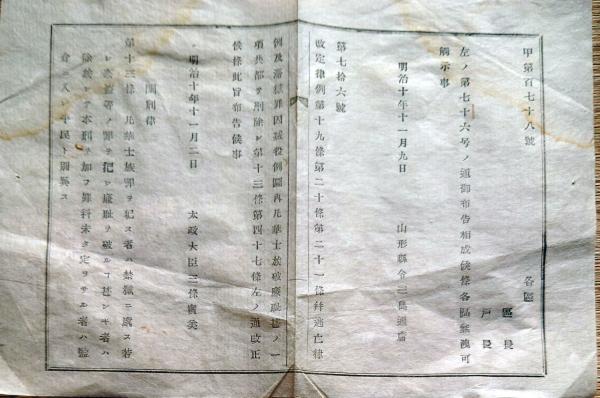 甲第百七十八號
各區
區長
戸長
左ノ第七十六号ノ通御布告相成候條各區無洩可
觸示事
明治十年十一月九日
山形縣令三島通庸
第七拾六號
改定律例第十九條第二十條第二十一條幷逃亡律
例及滯獄罪囚減殺例圖再凡華士族破廉恥甚ノ一
項共都テ刪除シ第十三條第四十七條左ノ通改正
候條此旨布告候事
明治十年十一月二日
太政大臣三條實美
閏刑律
第十三條 凡華士族罪ヲ犯ス者ハ禁獄ニ處ス若
シ賊盗等ノ罪ヲ犯シ廉恥ヲ破ルコ甚シキ者ハ
除族シテ本刑ヲ加フ罪科未タ定ラサル者ハ監
倉ニ入レ平民ト別異ス